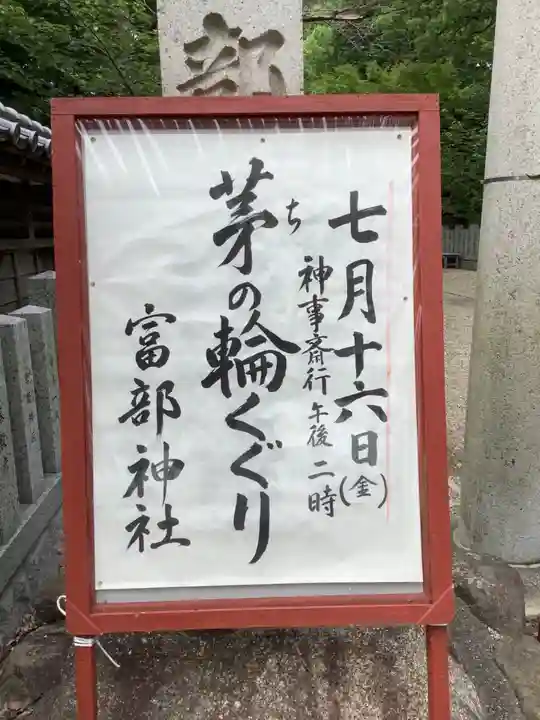 七月十六日(金)
神事斎行 午後二時
ち
茅の輪くぐり
富部神社
部